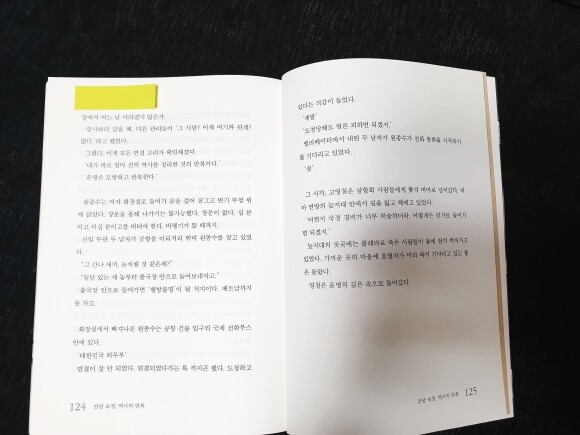 앞에서 어느 날 사라졌지 않은가.
'인사하러 갔을 때, 다른 관리들이 '그 사람? 이제 여기와 관계
없다.'라고 했었다.
'그랬다. 이제 모든 연결 고리가 확연해졌다.
'내가 바로 얼마 전의 역사를 정리한 것의 반복이다.'
'운명은 모방하고 반복한다.'
원종수는 여자 화장실로 들어가 문을 걸어 잠그고 변기 뚜껑 위
에 앉았다. 창문을 통해 나가기는 불가능했다. 창문이 없다. 십 분
이고 이십 분이고를 버텨야 한다. 비행기가 뜰 때까지.
선임 부관 두 남자가 공항을 여기저기 뛰며 원종수를 찾고 있었
다.
"그 간나 새끼, 눈치챈 것 같은데?"
"일단 있는 세 놈부터 출국장 안으로 들여보내자고."
출국장 안으로 들어가면 '행방불명'이 될 처지이다. 베트남까지
못 가고.
화장실에서 빠져나온 원종수는 공항 건물 입구의 국제 전화부스
안에 있다.
'대한민국 외무부'
연결이 잘 안 되었다. 연결되었다가는 툭 꺼지곤 했다. 도청하고
124 잔당 숙청, 역사의 반복
있다는 직감이 들었다.
'제발'
'도청당해도 일은 피하면 되겠지.'
엘리베이터에서 내린 두 남자가 원종수가 전화 통화를 시작하기
를 기다리고 있었다.
'쉼'
그 시각, 고영철은 삼합회 사람들에게 쫓겨 미얀마로 넘어갔다. 미
얀마 변방의 늪지대 안에서 길을 잃고 헤매고 있었다.
'어쩐지 국경 경비가 너무 허술하더라. 어떻게든 민가로 들어가
면 되겠지.'
늪지대의 곳곳에는 콜레라로 죽은 사람들이 물에 잠겨 썩어가고
있었다. 가까운 곳의 마을에 호열자가 머리 풀어 기다리고 있는 줄
은 몰랐다.
영철은 운명의 깊은 속으로 들어갔다.
잔당 숙청, 역사의 반복 125